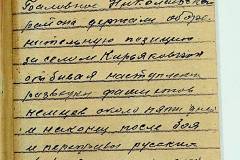 района держали оборо-
нительную позицию
за селом Кирьяковка
отбивая наступлен
разведки фашистов
немцев около пяти дней
и наконец после боя
и перестрелки русских